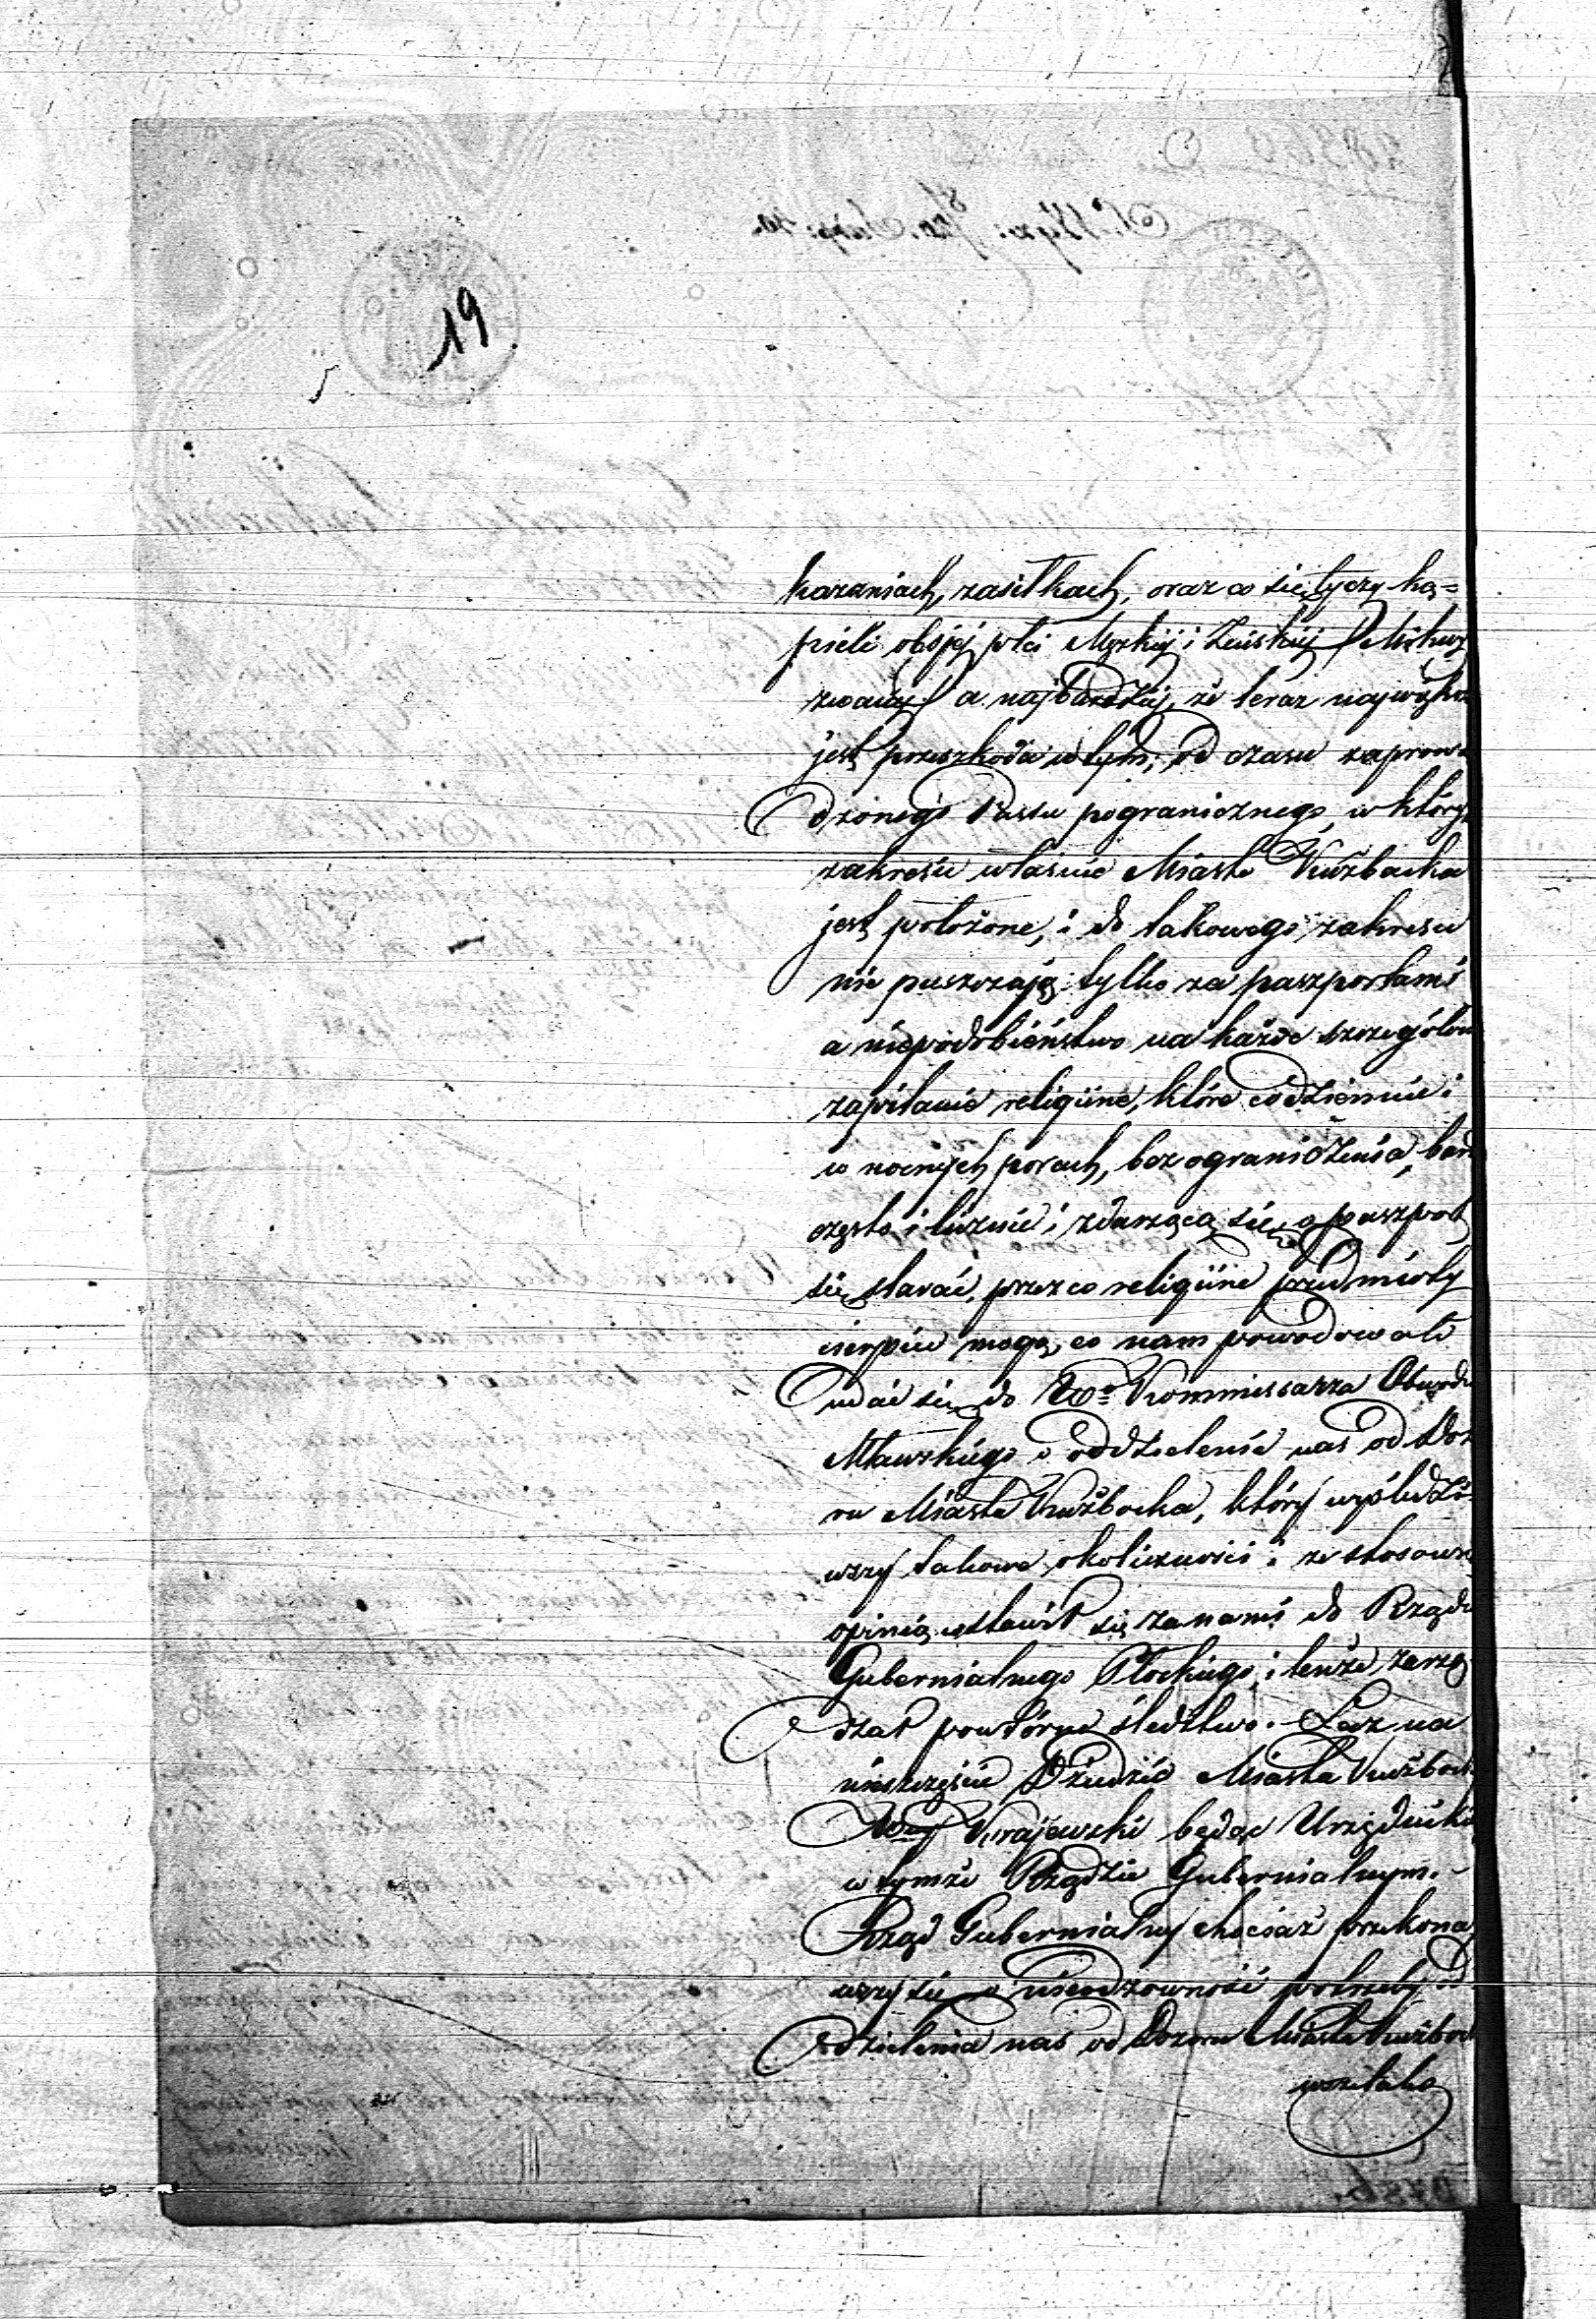 19
kazaniach, zasiłkach, oraz co się tyczy ką=
pieli obojej płci Męzkiej i Żeńskiej (Mikwy
zwanej) a najbardziej, że teraz największa
jest przeszkoda w tym, od czasu zaprowa
dzonego Passu pogranicznego, w który
zakresie własnie Miasto Kuźbocka
jest położone, i do takowego zakresu
nie puszczają tylko za paszportami
a niepodobieństwo na każde szczególne
zapitanie religijne, które codziennie i
w nocnych porach, bez ograniczenia, bard
często i licznie i zdarzącą się o paszport
się starać, przez co religijne przedmioty
cierpieć mogą, co nam powodowało
udać się do Wo Kommissarza Obwodu
Mławskiego o oddzielenie nas od Dozo
ru Miasta Kuźbocka, który wyśledzi=
wszy takowe okoliczności i ze stosowną
opinią wstawił się za nami do Rządu
Gubernialnego Płockiego, i tenże zarzą
dzał powtórne śledztwo. Lecz na
nieszczęście Dziedzic Miasta Kuźbock
Wny Krajewski będąc Urzędnikie
w tymże Rządzie Gubernialnym.
Rząd Gubernialny chociaż przekona
wszy się o nieodzowność potrzeby od
dzielenia nas od Dozoru Miasta Kuźbock
wszelako